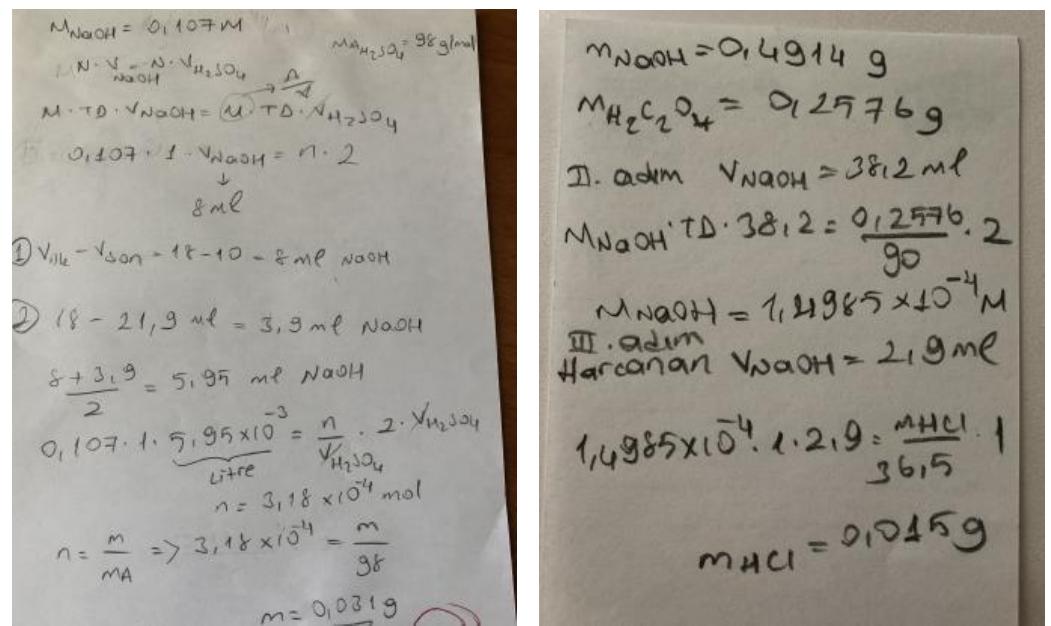 MNaOH = 0,107M
MAH₂SO₄ = 98 g/mol
N·V NaOH = N·VH₂SO₄
n/V
M·TD·VNaOH = M·TD·VH₂SO₄
0,107·1·VNaOH = n·2
↓
8 ml
① Vilk - Vson = 18-10 = 8 ml NaOH
② 18 - 21,9 ml = 3,9 ml NaOH
8+3,9/2 = 5,95 ml NaOH
0,107·1·5,95x10⁻³ = n/VH₂SO₄ · 2·VH₂SO₄
Litre
n = 3,18 x10⁻⁴ mol
n = m/MA => 3,18 x10⁻⁴ = m/98
m = 0,031g
mNaOH = 0,4914 g
MH₂C₂O₄ = 0,2576g
II. adım VNaOH = 38,2 ml
MNaOH·TD·38,2 = 0,2576/90 · 2
MNaOH = 1,4985 x10⁻⁴ M
III. adım
Harcanan VNaOH = 2,9 ml
1,4985x10⁻⁴·1·2,9 = mHCl/36,5 · 1
mHCl = 0,015g